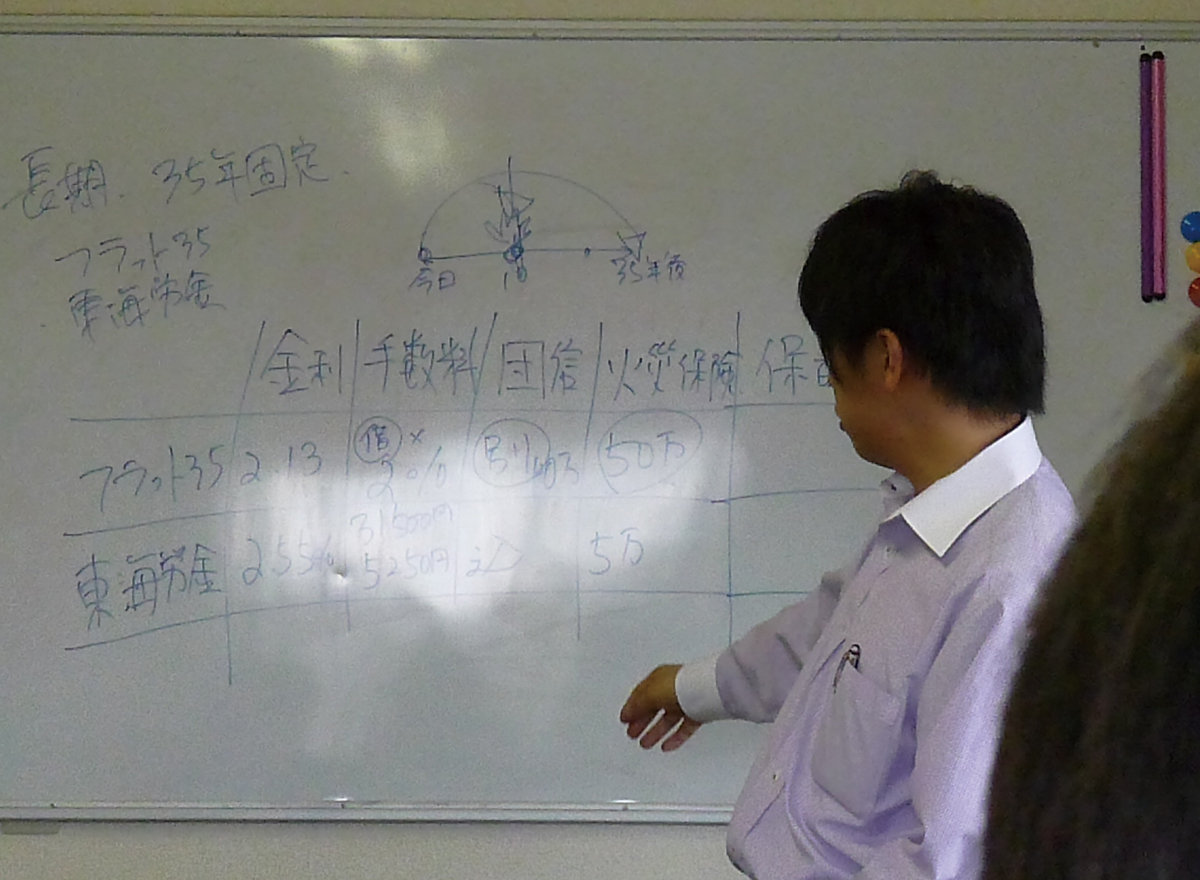 長期. 35年固定.
フラット35
東海労金
今日 10 35年後
金利 手数料 団信 火災保険 保
フラット35 2.13 借 × 2% 別 50万
31500円
東海労金 2.55% 5250円 5万